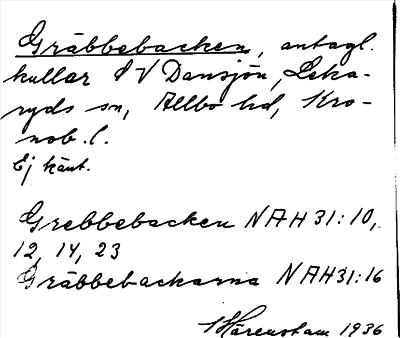 Gräbbebacken, antagl.
kullar SV Dansjön, Leka-
ryds sn, Allbo hd, Kro-
nob. l.
Ej känt.
Grebbebacken NAH 31:10,
12, 14, 23
Gräbbebackarna NAH31:16
Härenstam 1936